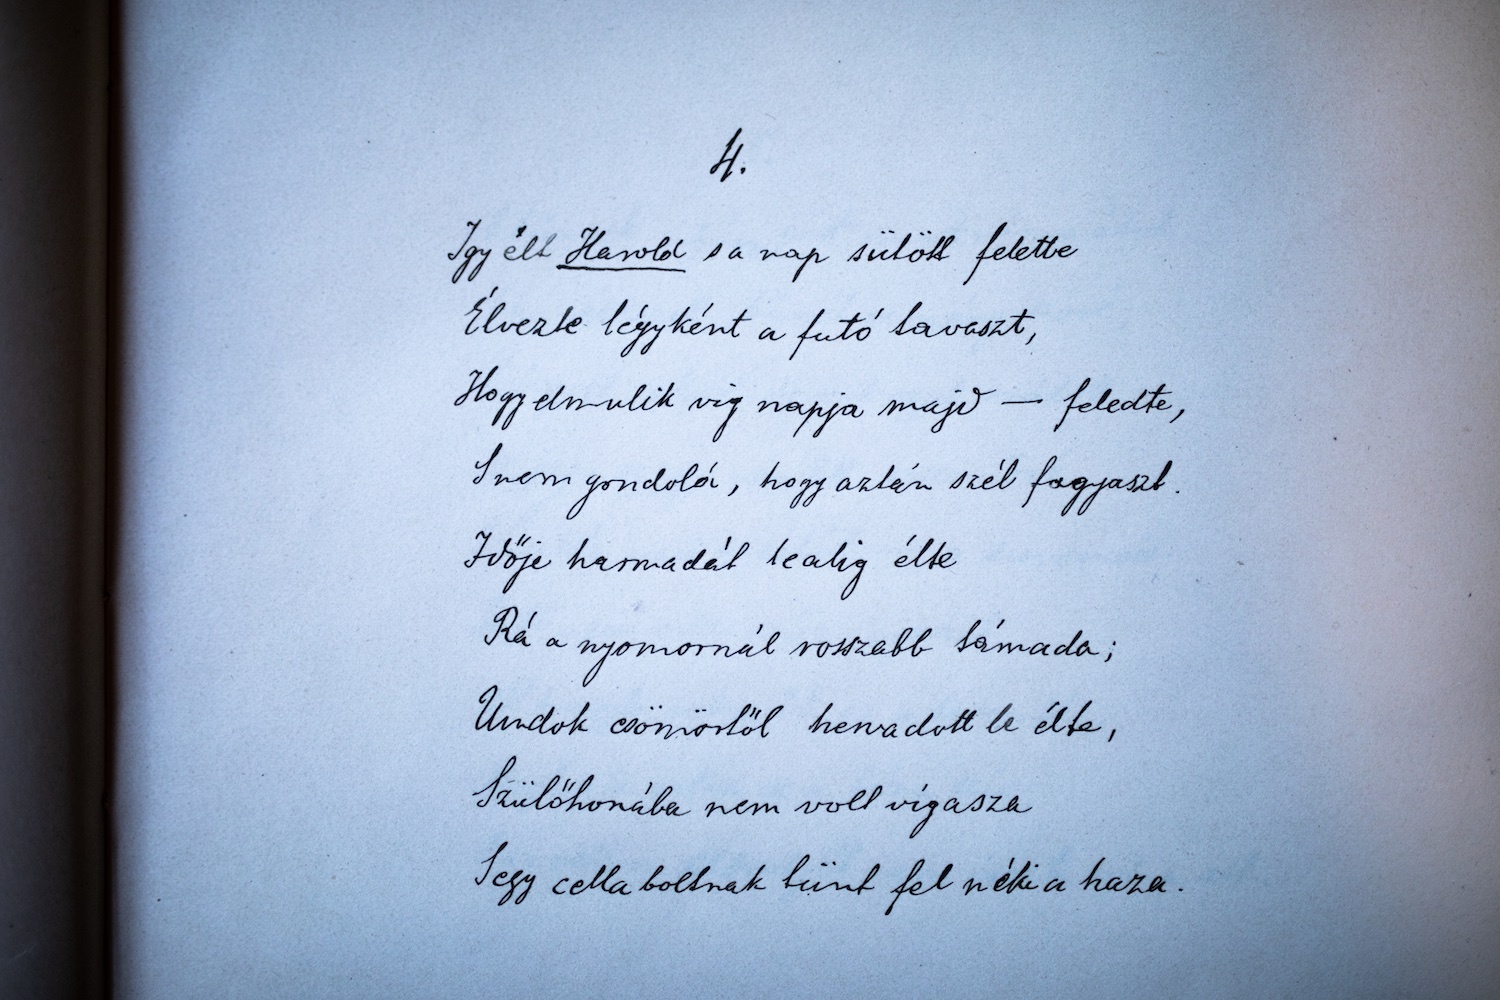 4.
Igy élt Harold s a nap sütött felette
Élvezte légyként a futó tavaszt,
Hogy elmulik vig napja majd — feledte,
S nem gondolá, hogy aztán szél fagyaszt.
Idője harmadát te alig élte
Rá a nyomornál rosszabb támada;
Undok csömörtől hervadott le élte,
Szülőhonába nem volt vigasza
S egy cella boltnak tünt fel néki a haza.